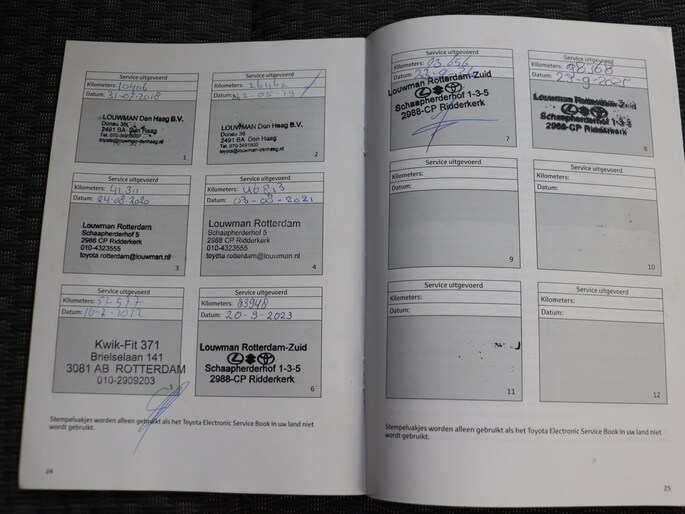 Service uitgevoerd
Kilometers: 10406
Datum: 31-07-2018
LOUWMAN Den Haag B.V.
Donau 38
2491 BA Den Haag
1
Service uitgevoerd
Kilometers:
Datum:
LOUWMAN Den Haag B.V.
Donau 38
2491 BA Den Haag
2
Service uitgevoerd
Kilometers: 41311
Datum: 24-08-2020
Louwman Rotterdam
Schaapherderhof 5
2988 CP Ridderkerk
010-4323555
toyota.rotterdam@louwman.nl
3
Service uitgevoerd
Kilometers:
Datum: 03-08-2021
Louwman Rotterdam
Schaapherderhof 5
2988 CP Ridderkerk
010-4323555
toyota.rotterdam@louwman.nl
4
Service uitgevoerd
Kilometers: 52577
Datum:
Kwik-Fit 371
Brielselaan 141
3081 AB ROTTERDAM
010-2909203
5
Service uitgevoerd
Kilometers:
Datum: 20-9-2023
Louwman Rotterdam-Zuid
Schaapherderhof 1-3-5
2988-CP Ridderkerk
6
Stempelvakjes worden alleen gebruikt als het Toyota Electronic Service Book in uw land niet
wordt gebruikt.
24
Service uitgevoerd
Kilometers:
Datum:
Louwman Rotterdam-Zuid
Schaapherderhof 1-3-5
2988-CP Ridderkerk
7
Service uitgevoerd
Kilometers:
Datum:
Schaapherderhof 1-3-5
2988-CP Ridderkerk
8
Service uitgevoerd
Kilometers:
Datum:
9
Service uitgevoerd
Kilometers:
Datum:
10
Service uitgevoerd
Kilometers:
Datum:
11
Service uitgevoerd
Kilometers:
Datum:
12
Stempelvakjes worden alleen gebruikt als het Toyota Electronic Service Book in uw land niet
wordt gebruikt.
25